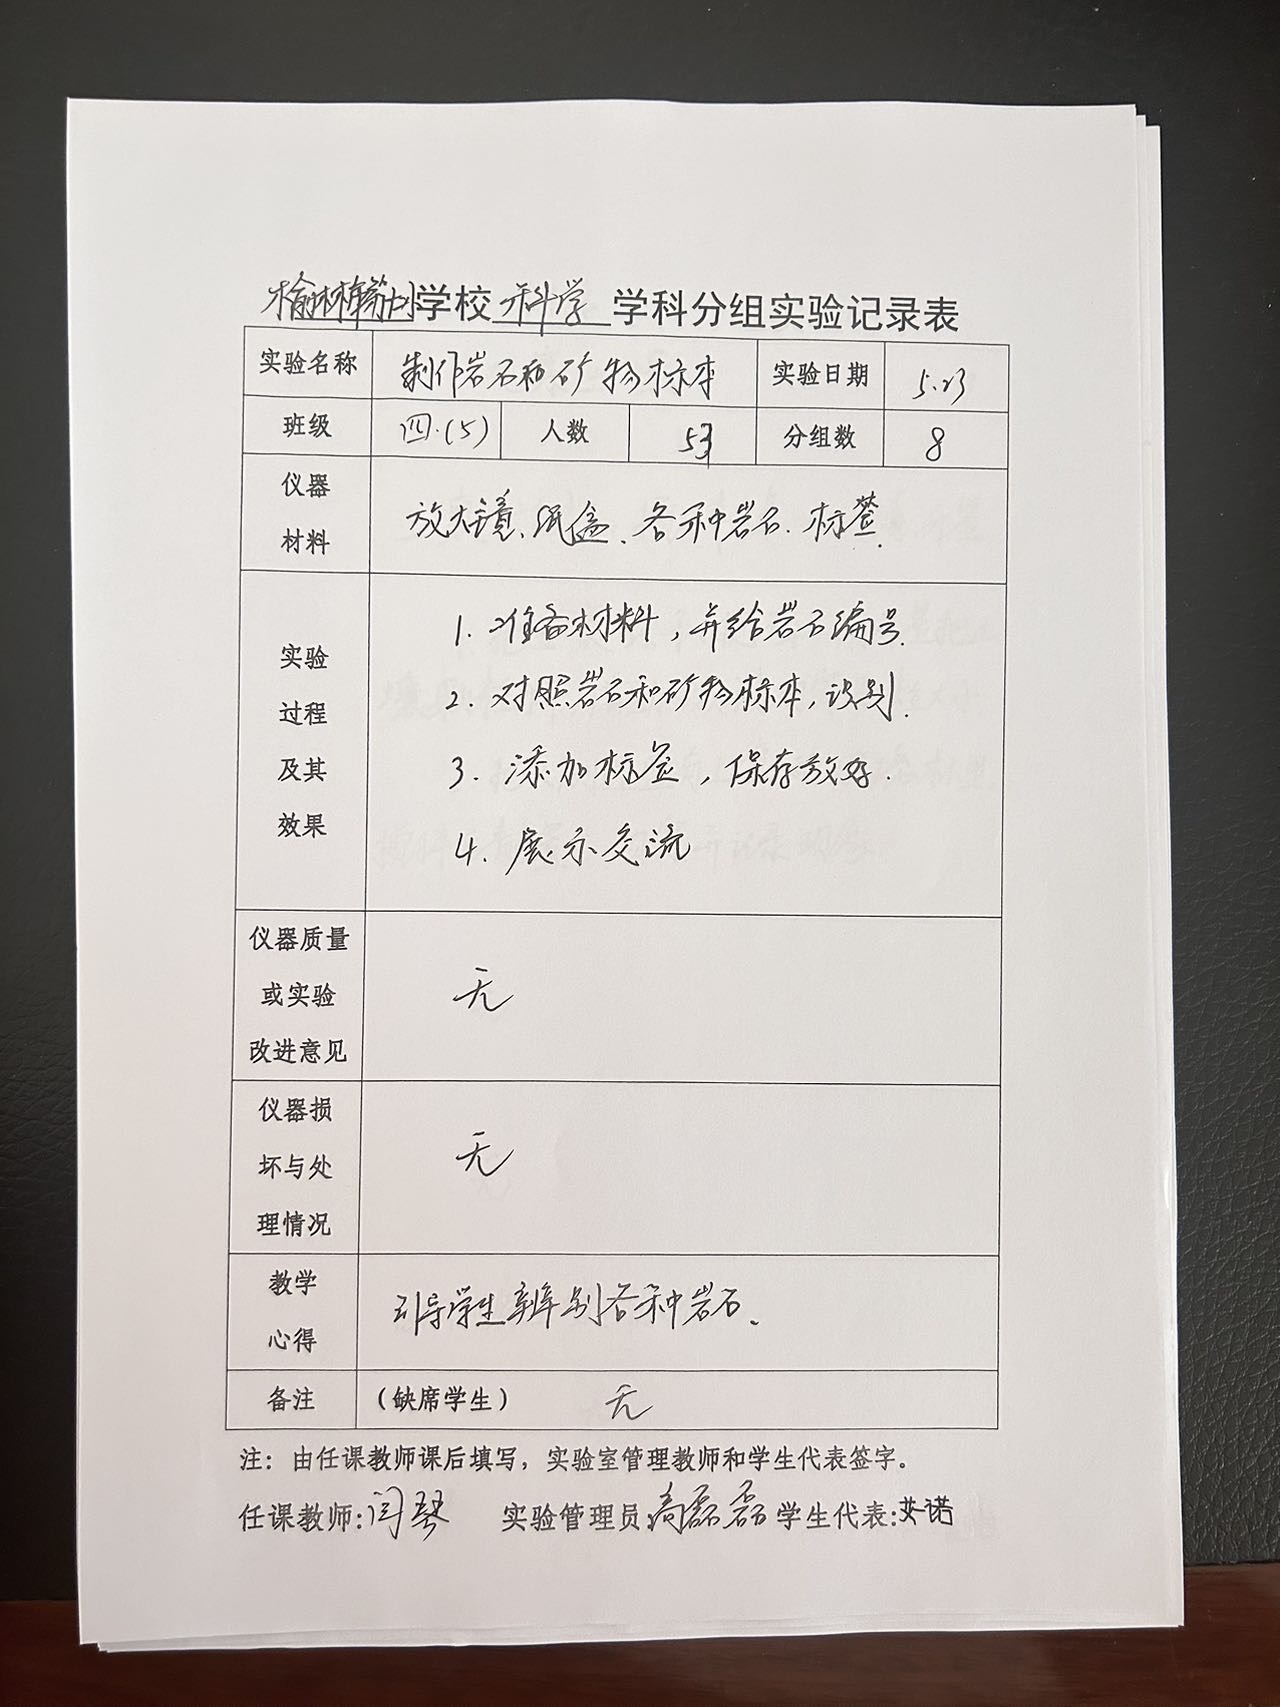 学校 科学 学科分组实验记录表
实验名称 制作岩石和矿物标本 实验日期 5.23
班级 四.(5) 人数 53 分组数 8
仪器
材料
放大镜、纸盒、各种岩石、标签.
实验
过程
及其
效果
1. 准备材料，并给岩石编号.
2. 对照岩石和矿物标本，识别.
3. 添加标签，保存放好.
4. 展示交流
仪器质量
或实验
改进意见
无
仪器损
坏与处
理情况
无
教学
心得
引导学生辨别各种岩石。
备注 （缺席学生） 无
注：由任课教师课后填写，实验室管理教师和学生代表签字。
任课教师:闫琴 实验管理员:高磊磊 学生代表:艾诺